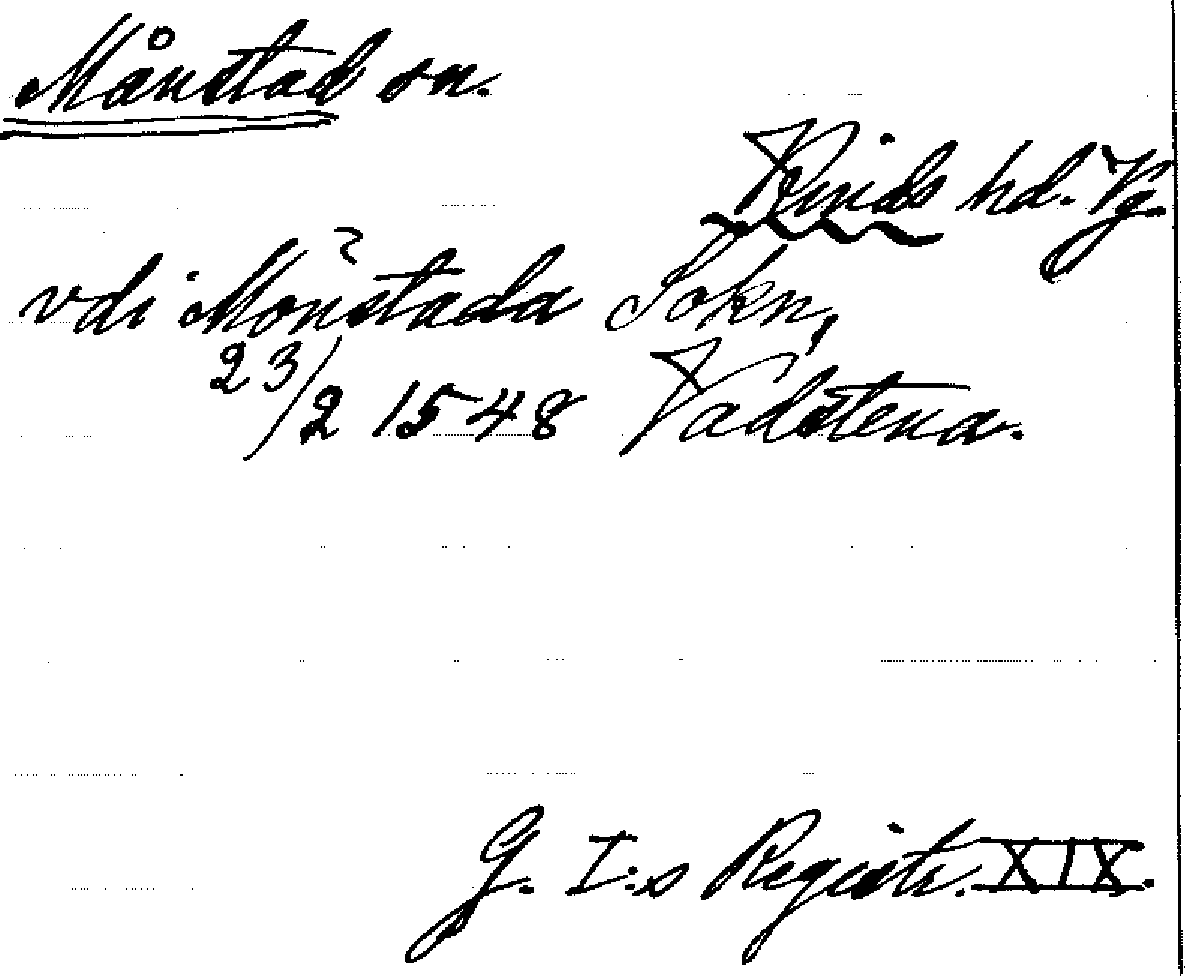 Månstad sn.
Kinds hd. Vg.
vdi Monstada Sokn,
23/2 1548 Vadstena.
G. I:s Registr. XIX.